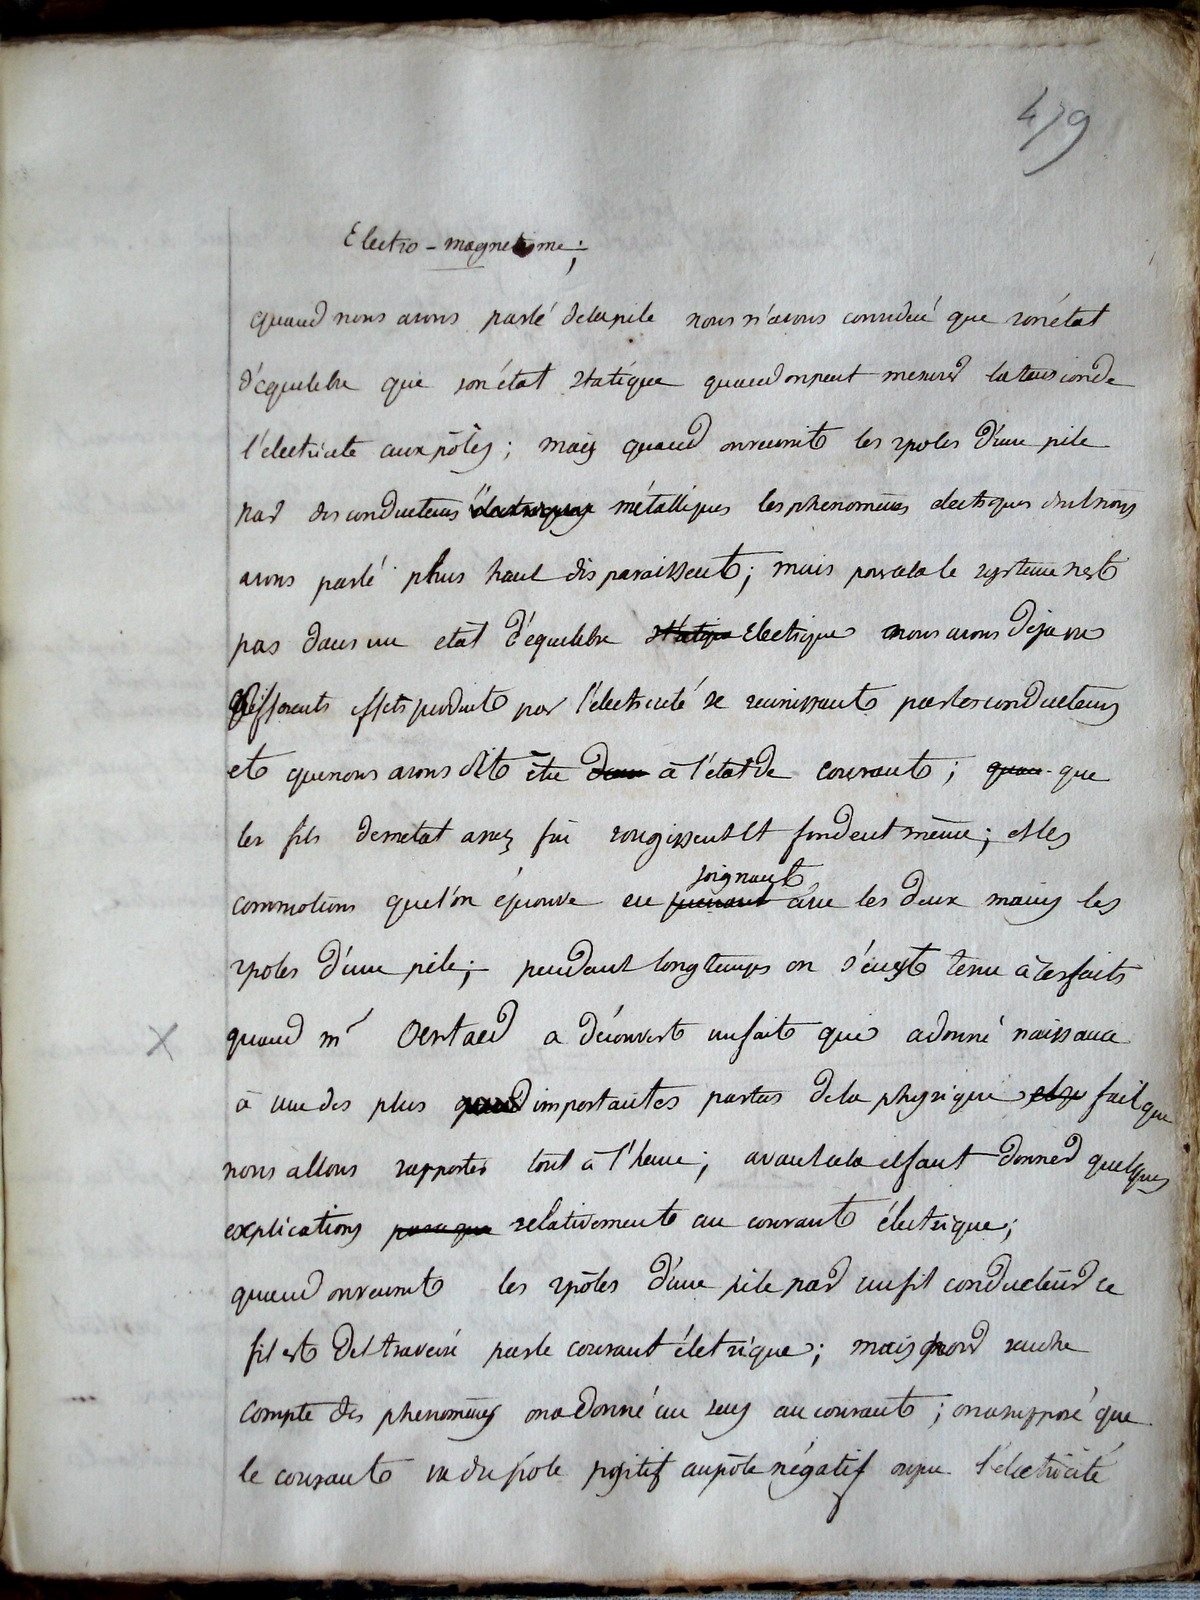 479
Electro-magnetisme;
quand nous avons parlé dela pile nous n'avons consideré que son état
d'equilibre que son état statique quand on peut mesurer la tension de
l'électricite aux pôles; mais quand on reunit les 2 poles d'une pile
par des conducteurs électriques métalliques les phenomènes electriques dont nous
avons parlé plus haut disparaissent; mais pour cela le systeme n'est
pas dans un etat d'équilibre statique électrique nous avons déja vu
differents effets produits par l'électricité se reunissant par les conducteurs
et que nous avons dit être dans à l'état de courant; quan que
les fils de metal assez fin rougissent et fondent même; et les
soignant
commotions que l'on éprouve en prenant avec les deux mains les
2 poles d'une pile; pendant longtemps on s'en est tenu à ces faits
X quand mr Oerstaed a découvert un fait qui a donné naissance
à une des plus grand importantes parties dela physique fait que
nous allons rapporter tout à l'heure; avant cela il faut donner quelques
explications relativement au courant électrique;
quand on reunit les 2 pôles d'une pile par un fil conducteur ce
fil est dit traversé par le courant életrique; mais pour rendre
compte des phenomènes on a donné un sens au courant; on a supposé que
le courant va du pôle positif au pôle négatif ou que l'électricité